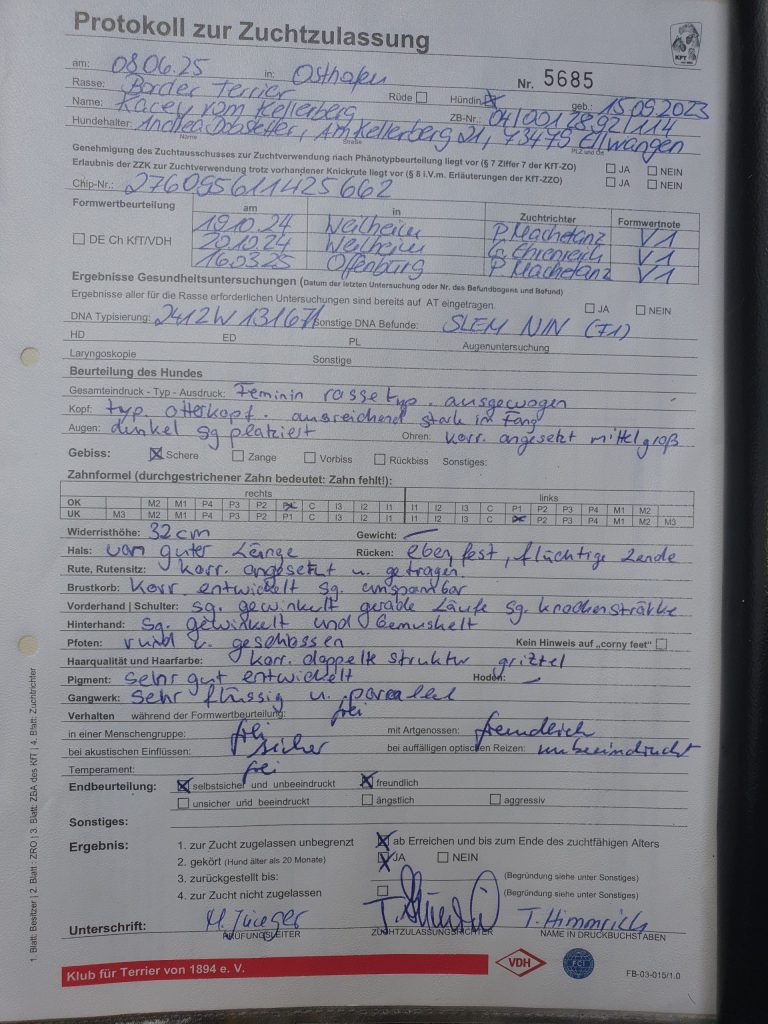 Protokoll zur Zuchtzulassung
KFT
am: 08.06.25 in: Osthofen Nr. 5685
Rasse: Border Terrier Rüde Hündin geb.: 15.09.2023
Name: Kacey vom Kellerberg ZB-Nr.: 04/0012892/114
Hundehalter: Andrea Dobstetter, Am Kellerberg 21, 73479 Ellwangen
Name Straße PLZ und Ort
Genehmigung des Zuchtausschusses zur Zuchtverwendung nach Phänotypbeurteilung liegt vor (§ 7 Ziffer 7 der KfT-ZO) JA NEIN
Erlaubnis der ZZK zur Zuchtverwendung trotz vorhandener Knickrute liegt vor (§ 8 i.V.m. Erläuterungen der KfT-ZZO) JA NEIN
Chip-Nr.: 276095611425662
Formwertbeurteilung am in Zuchtrichter Formwertnote
19.10.24 Weilheim P. Machetanz V1
DE Ch KfT/VDH 20.10.24 Weilheim V1
16.03.25 Offenburg P Machetanz V1
Ergebnisse Gesundheitsuntersuchungen (Datum der letzten Untersuchung oder Nr. des Befundbogens und Befund)
Ergebnisse aller für die Rasse erforderlichen Untersuchungen sind bereits auf AT eingetragen. JA NEIN
DNA Typisierung: 2412W13167 Sonstige DNA Befunde: SLEM N/N (71)
HD ED PL Augenuntersuchung
Laryngoskopie Sonstige
Beurteilung des Hundes
Gesamteindruck - Typ - Ausdruck: Feminin rassetyp. ausgewogen
Kopf: typ. Otterkopf. ausreichend stark im Fang
Augen: dunkel sg platziert Ohren: korr. angesetzt mittelgroß
Gebiss: Schere Zange Vorbiss Rückbiss Sonstiges:
Zahnformel (durchgestrichener Zahn bedeutet: Zahn fehlt!):
rechts links
OK M2 M1 P4 P3 P2 P1 C I3 I2 I1 I1 I2 I3 C P1 P2 P3 P4 M1 M2
UK M3 M2 M1 P4 P3 P2 P1 C I3 I2 I1 I1 I2 I3 C P1 P2 P3 P4 M1 M2 M3
Widerristhöhe: 32cm Gewicht: —
Hals: von guter Länge Rücken: eben, fest, flüchtige Lende
Rute, Rutensitz: korr. angesetzt u. getragen.
Brustkorb: Korr. entwickelt sg. umspannbar
Vorderhand | Schulter: sg. gewinkelt gerade Läufe sg. knochenstärke
Hinterhand: sg. gewinkelt und bemuskelt
Pfoten: rund u. geschlossen Kein Hinweis auf „corny feet"
Haarqualität und Haarfarbe: korr. doppelte struktur grizzel
Pigment: sehr gut entwickelt Hoden: —
Gangwerk: Sehr flüssig u. parallel
Verhalten während der Formwertbeurteilung: frei
in einer Menschengruppe: frei mit Artgenossen: freundlich
bei akustischen Einflüssen: sicher bei auffälligen optischen Reizen: unbeeindruckt
Temperament: frei
Endbeurteilung: selbstsicher und unbeeindruckt freundlich
unsicher und beeindruckt ängstlich aggressiv
Sonstiges:
Ergebnis: 1. zur Zucht zugelassen unbegrenzt ab Erreichen und bis zum Ende des zuchtfähigen Alters
2. gekört (Hund älter als 20 Monate) JA NEIN
3. zurückgestellt bis: (Begründung siehe unter Sonstiges)
4. zur Zucht nicht zugelassen (Begründung siehe unter Sonstiges)
Unterschrift: T. Himmrich
PRÜFUNGSLEITER ZUCHTZULASSUNGSRICHTER NAME IN DRUCKBUCHSTABEN
Klub für Terrier von 1894 e. V. VDH FCI FB-03-015/1.0
1. Blatt: Besitzer | 2. Blatt: ZRO | 3. Blatt: ZBA des KfT | 4. Blatt: Zuchtrichter